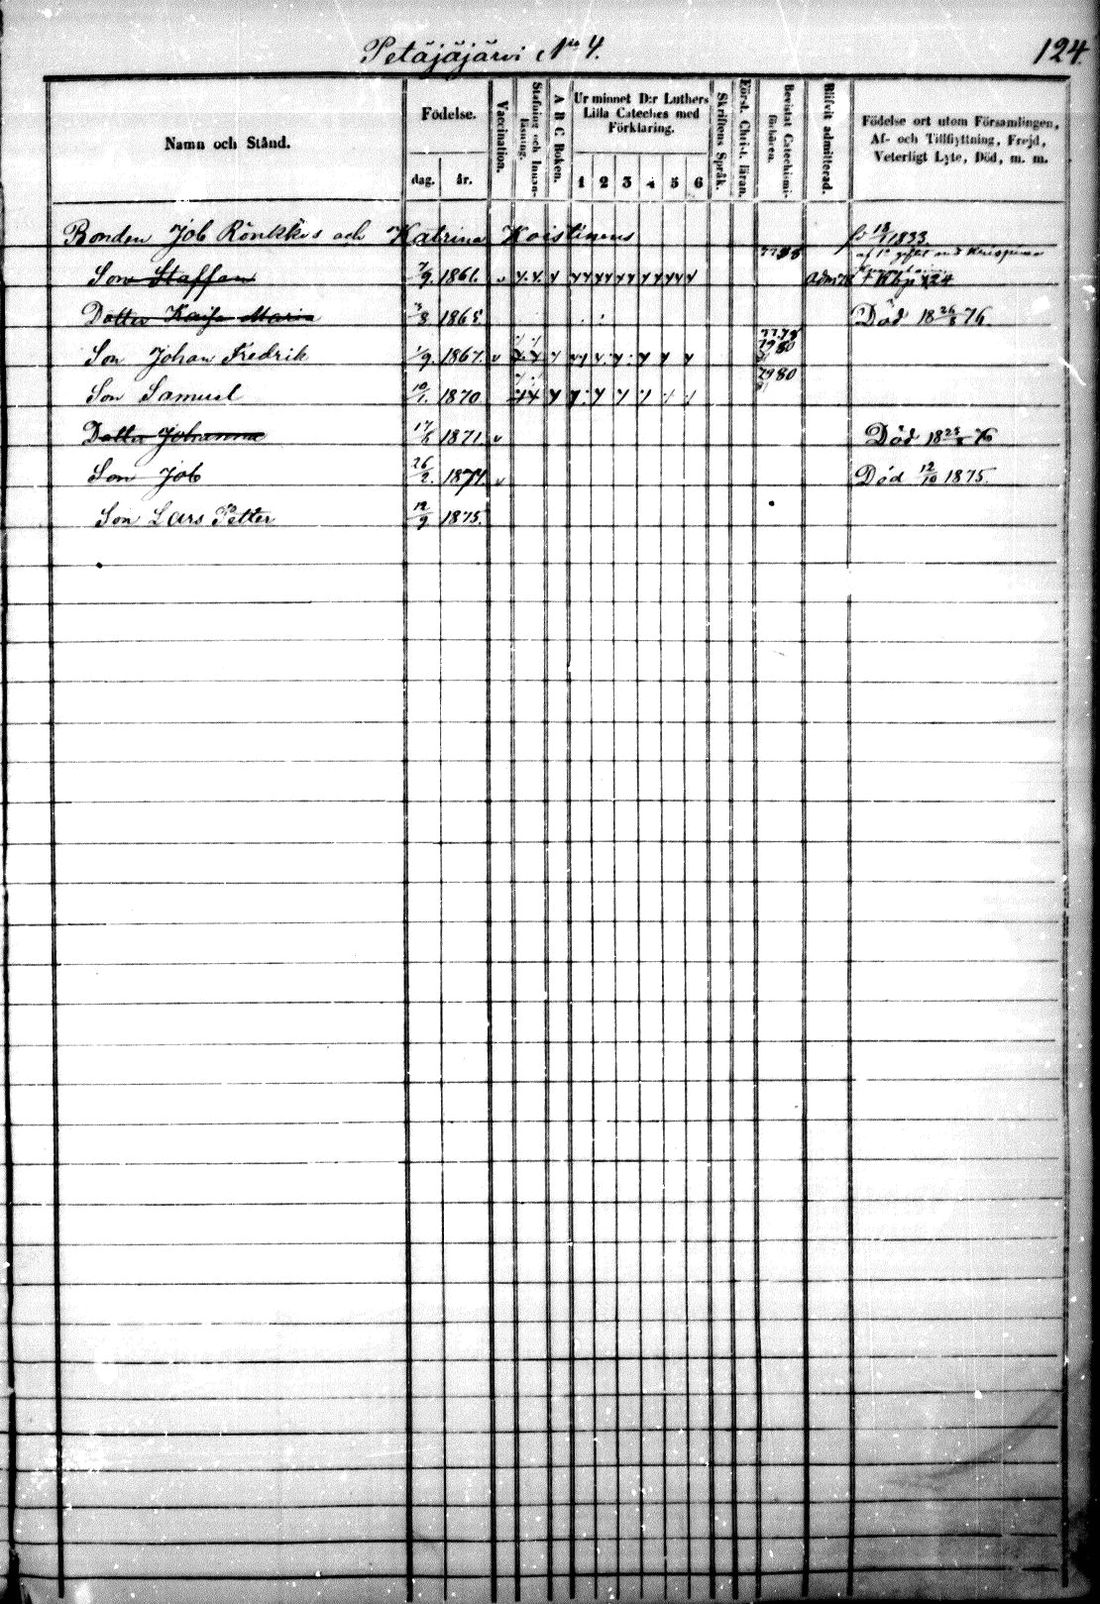 Petäjäjärvi No 4.
124.
Namn och Stånd.
Födelse.
dag.
år.
Vaccination.
Stafning och Innanläsning.
A B C Boken.
Ur minnet D:r Luthers
Lilla Cateches med
Förklaring.
1 2 3 4 5 6
Skriftens Språk.
Först. Christ. läran.
Bevistat Catechismiförhören.
Blifvit admitterad.
Födelse ort utom Församlingen,
Af- och Tillflyttning, Frejd,
Veterligt Lyte, Död, m. m.
Bonden Job Rönkkös och Katrina Koistinens 1833.
Son Staffan 7/9 1861. v
Dotter Kaisa Maria 3/8 1865. Död 18 26/8 76.
Son Johan Fredrik 1/9 1867. v 79 80
Son Samuel 10/1 1870. 79 80
Dotter Johanna 17/6 1871. v Död 18 25/8 76
Son Job 26/2 1874. v Död 12/10 1875.
Son Lars Petter 12/9 1875.